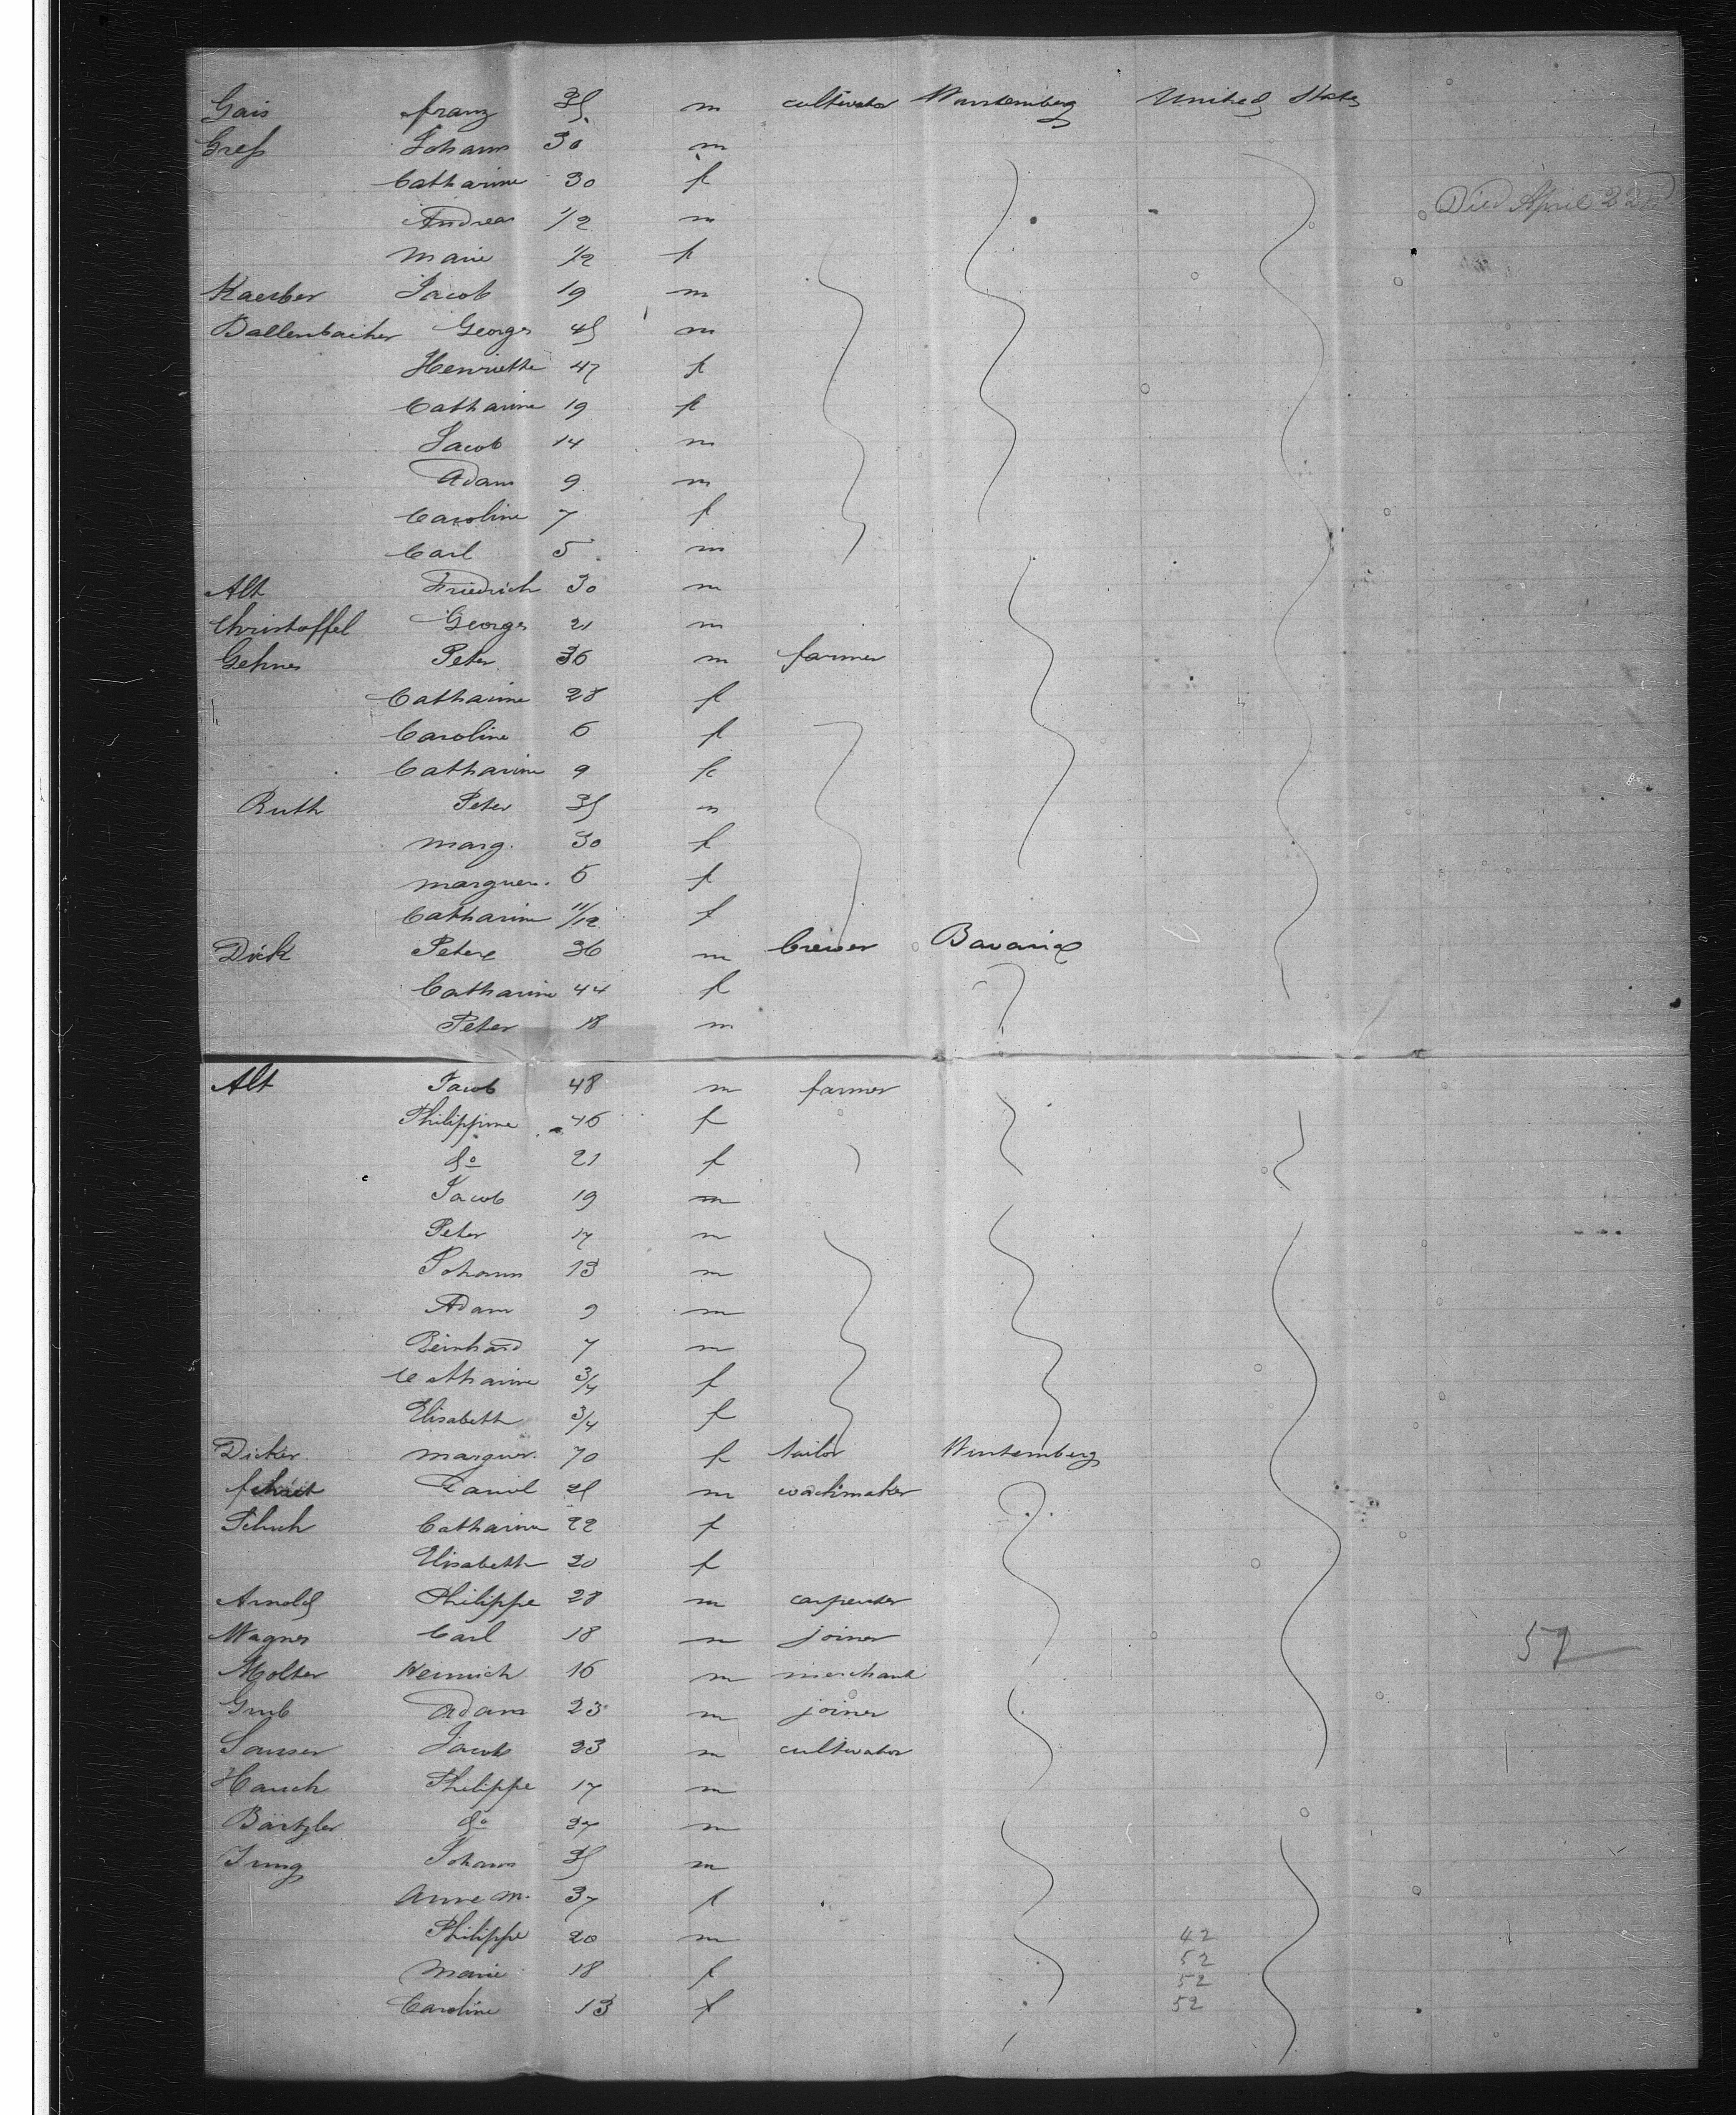 Gais franz 35 m cultivator Wurtemberg United States
Gress Johann 30 m
Catharine 30 f
Andreas 1/2 m Died April 22d
Marie 1/2 f
Kaerber Jacob 19 m
Ballenbacher Georges 45 m
Henriette 47 f
Catharine 19 f
Jacob 14 m
Adam 9 m
Caroline 7 f
Carl 5 m
Alt Friedrich 30 m
Christoffel Georges 21 m
Gehres Peter 36 m farmer
Catharine 28 f
Caroline 6 f
Catharine 9 f
Ruth Peter 35 m
Marg. 30 f
marguer. 6 f
Catharine 11/12 f
Dick Peter 36 m brewer Bavaria
Catharine 44 f
Peter 18 m
Alt Jacob 48 m farmer
Philippine 46 f
do 21 f
Jacob 19 m
Peter 17 m
Johann 13 m
Adam 9 m
Reinhard 7 m
Catharine 3/4 f
Elisabeth 3/4 f
Dicker marguer. 70 f tailor Wurtemberg
Daniel 21 m watchmaker
Schuh Catharine 22 f
Elisabeth 20 f
Arnold Philippe 28 m carpenter
Wagner Carl 18 m joiner 52
Molter Heinrich 16 m merchand
Grub Adam 23 m joiner
Sausser Jacob 23 m cultivator
Hauch Philippe 17 m
Bärtzler do 27 m
Jung Johann 35 m
Anne M. 37 f
Philippe 20 m 42
52
Marie 18 f 52
Caroline 13 f 52